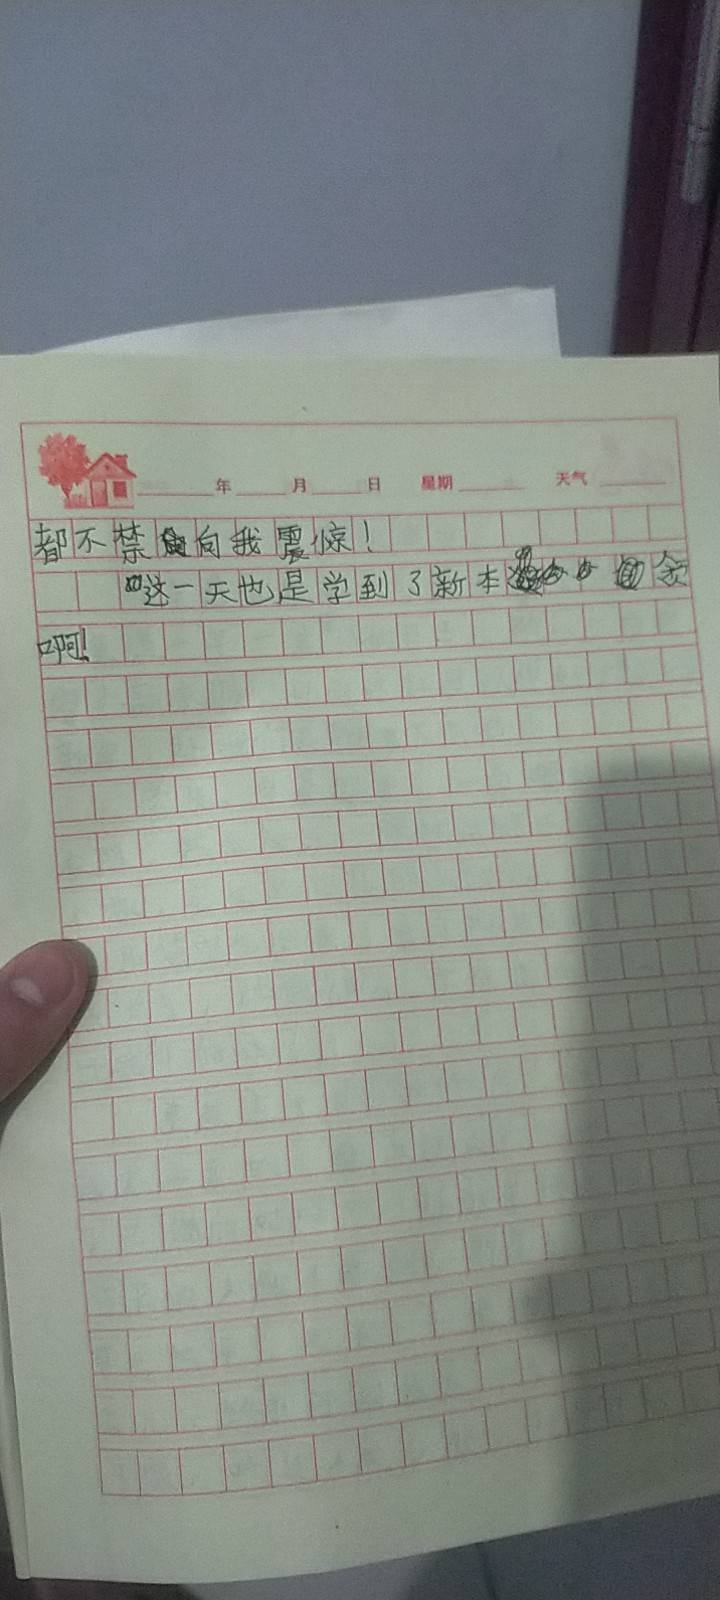 年 月 日 星期 天气
都不禁向我震惊!
这一天也是学到了新本
啊!